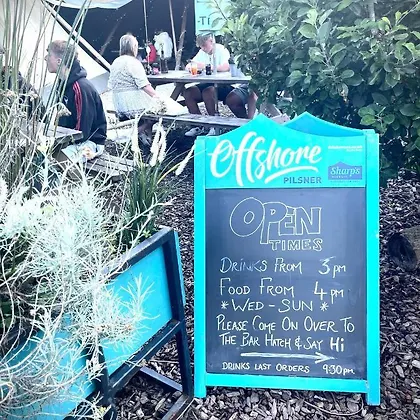 Offshore
PILSNER
Sharp's
OPEN
TIMES
DRINKS FROM 3pm
FOOD FROM 4pm
* WED - SUN *
PLEASE COME ON OVER TO
THE BAR HATCH & SAY Hi
DRINKS LAST ORDERS 9:30pm